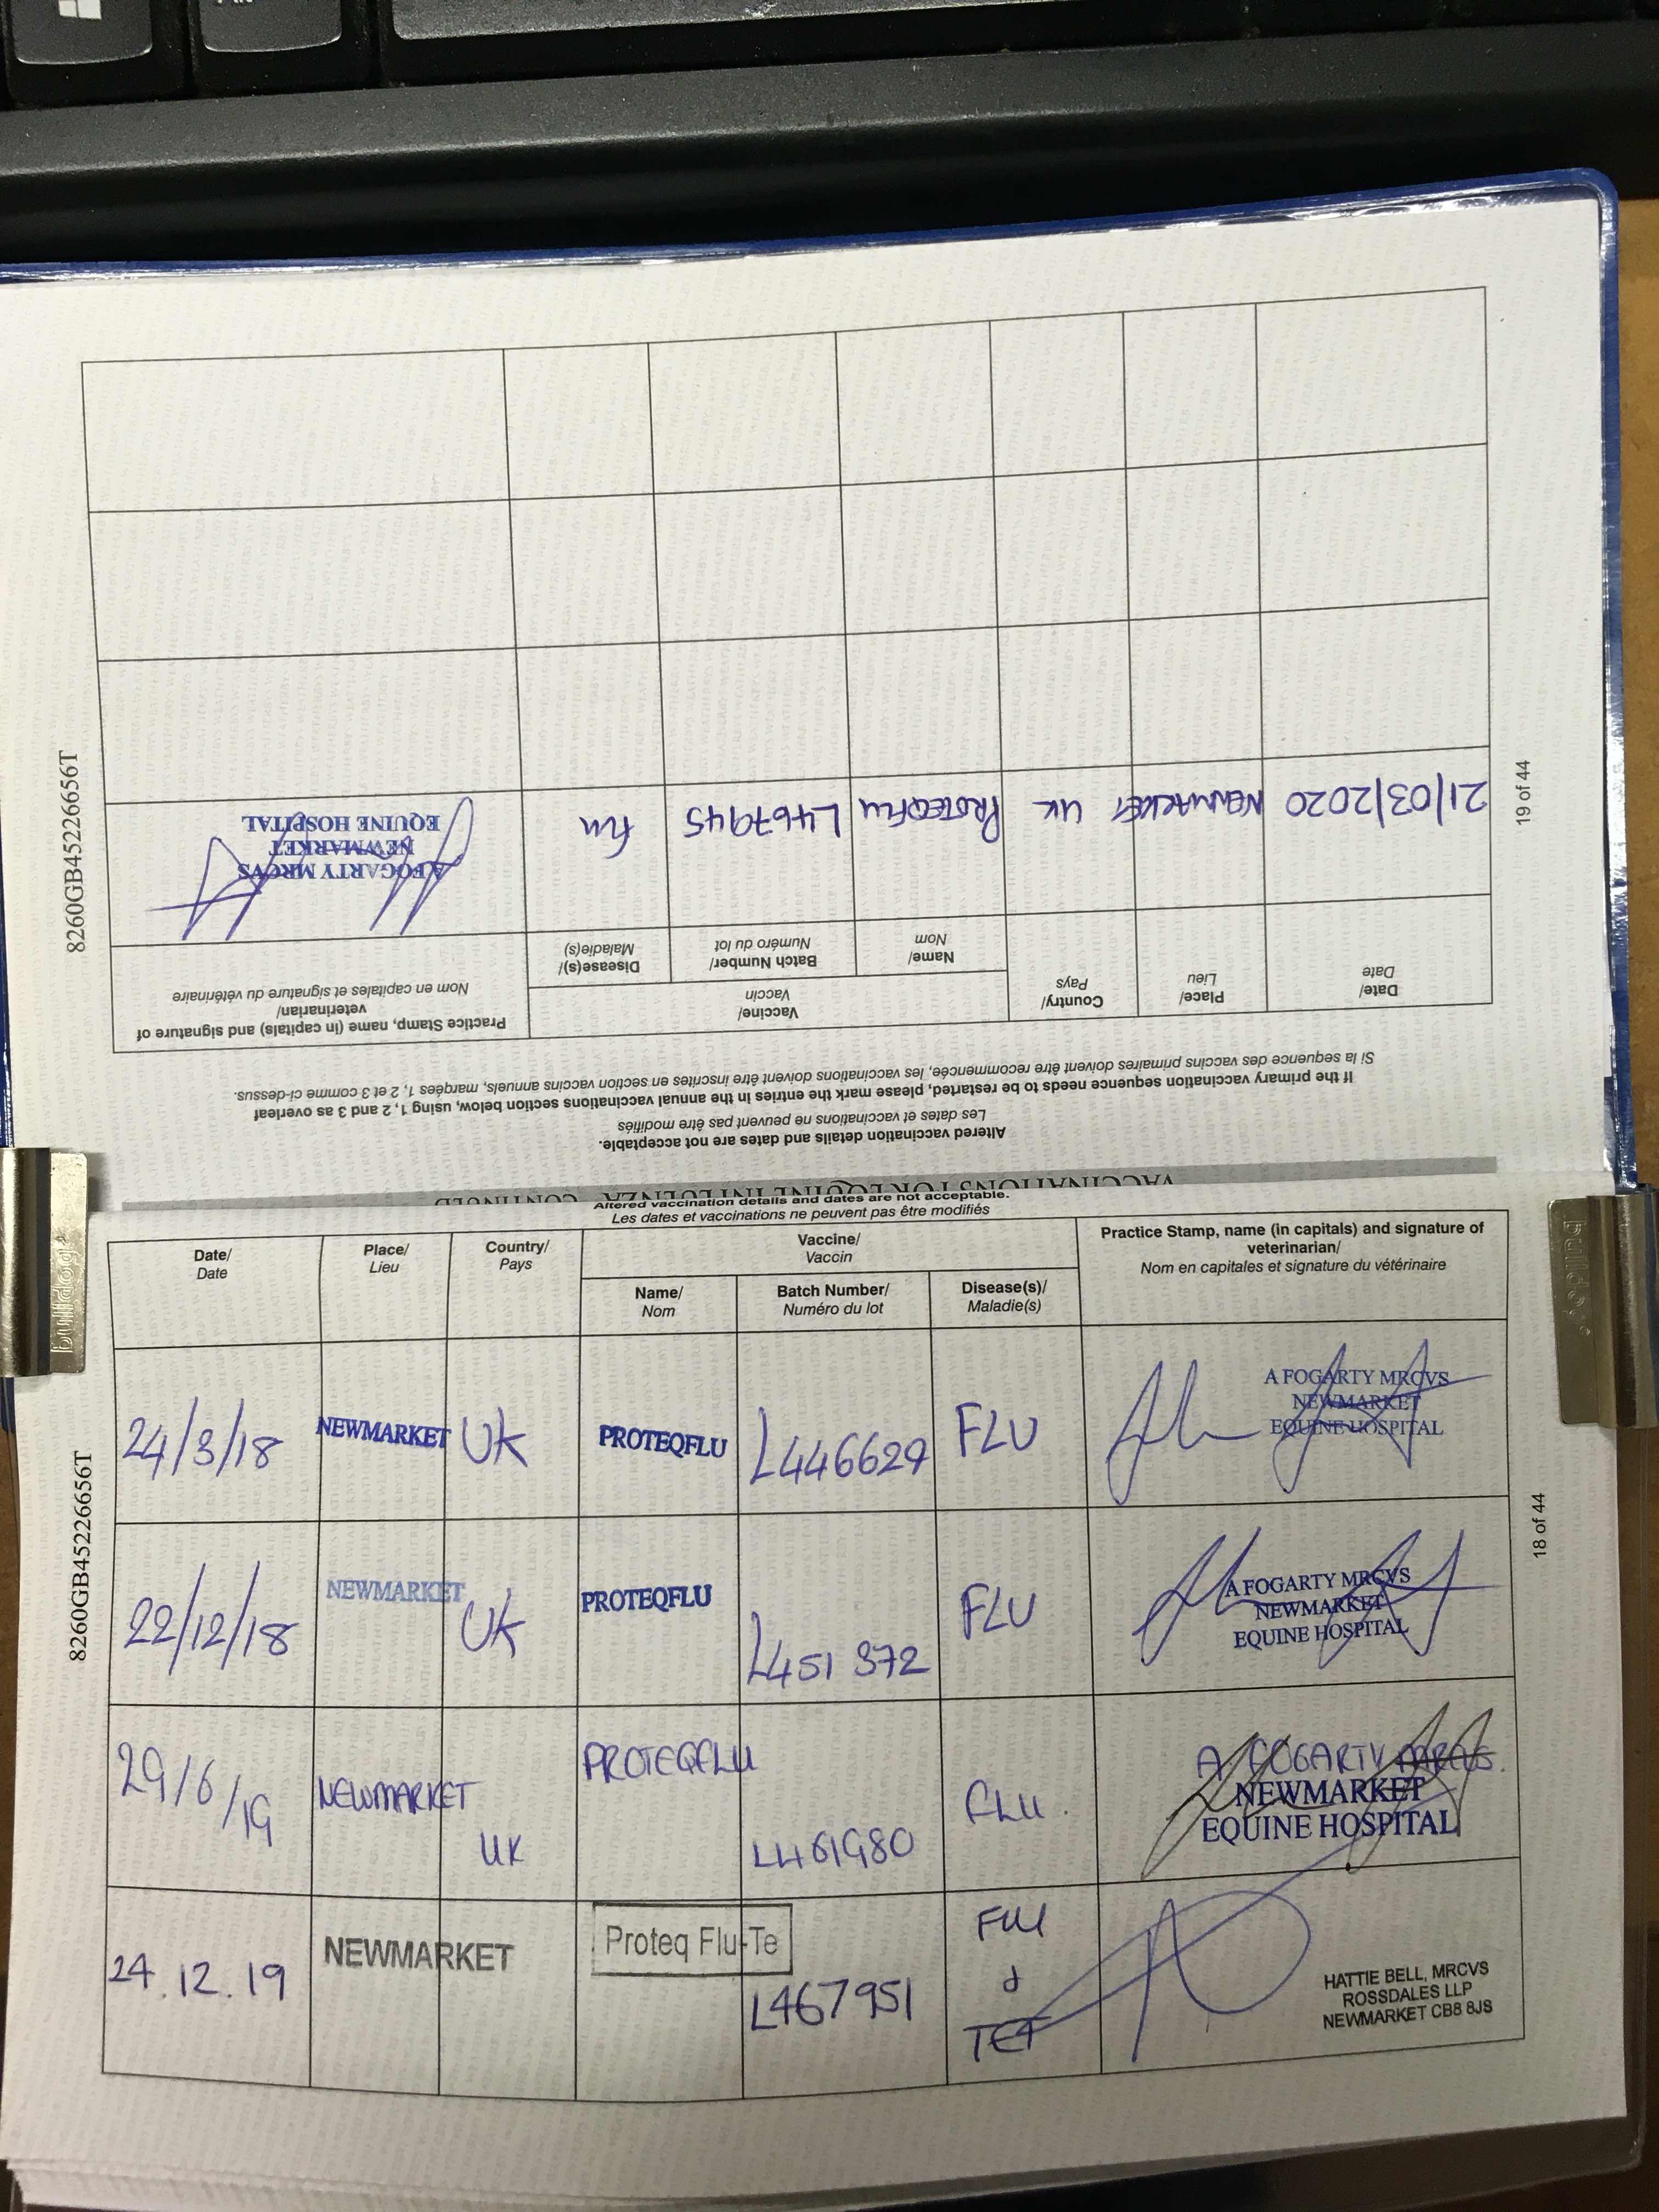 VACCINATIONS FOR EQUINE INFLUENZA - CONTINUED
Altered vaccination details and dates are not acceptable.
Les dates et vaccinations ne peuvent pas être modifiés
If the primary vaccination sequence needs to be restarted, please mark the entries in the annual vaccinations section below, using 1, 2 and 3 as overleaf
Si la sequence des vaccins primaires doivent être recommencée, les vaccinations doivent être inscrites en section vaccins annuels, marqées 1, 2 et 3 comme ci-dessus.
Date/
Date
Place/
Lieu
Country/
Pays
Vaccine/
Vaccin
Name/
Nom
Batch Number/
Numéro du lot
Disease(s)/
Maladie(s)
Practice Stamp, name (in capitals) and signature of
veterinarian/
Nom en capitales et signature du vétérinaire
21/03/2020 NEWMARKET UK PROTEQFLU L467945 Flu
A FOGARTY MRCVS
NEWMARKET
EQUINE HOSPITAL
8260GB45226656T
19 of 44
Altered vaccination details and dates are not acceptable.
Les dates et vaccinations ne peuvent pas être modifiés
Date/
Date
Place/
Lieu
Country/
Pays
Vaccine/
Vaccin
Name/
Nom
Batch Number/
Numéro du lot
Disease(s)/
Maladie(s)
Practice Stamp, name (in capitals) and signature of
veterinarian/
Nom en capitales et signature du vétérinaire
24/3/18 NEWMARKET UK PROTEQFLU L446629 FLU
A FOGARTY MRCVS
NEWMARKET
EQUINE HOSPITAL
22/12/18 NEWMARKET UK PROTEQFLU L451372 FLU
A FOGARTY MRCVS
NEWMARKET
EQUINE HOSPITAL
29/6/19 NEWMARKET UK PROTEQFLU L461980 FLU.
A FOGARTY MRCVS.
NEWMARKET
EQUINE HOSPITAL
24.12.19 NEWMARKET Proteq Flu-Te L467951 FLU
&
TET
HATTIE BELL, MRCVS
ROSSDALES LLP
NEWMARKET CB8 8JS
8260GB45226656T
18 of 44
bulldog
bulldog